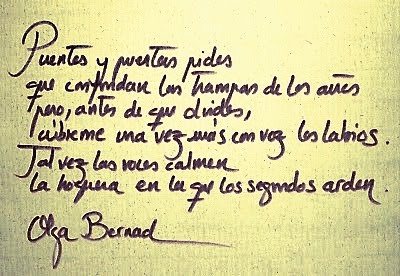 Puentes y puertas pides
que confundan las trampas de los años
pero, antes de que olvides,
cúbreme una vez más con voz los labios.
Tal vez las voces calmen
la hoguera en la que los segundos arden.
Olga Bernad